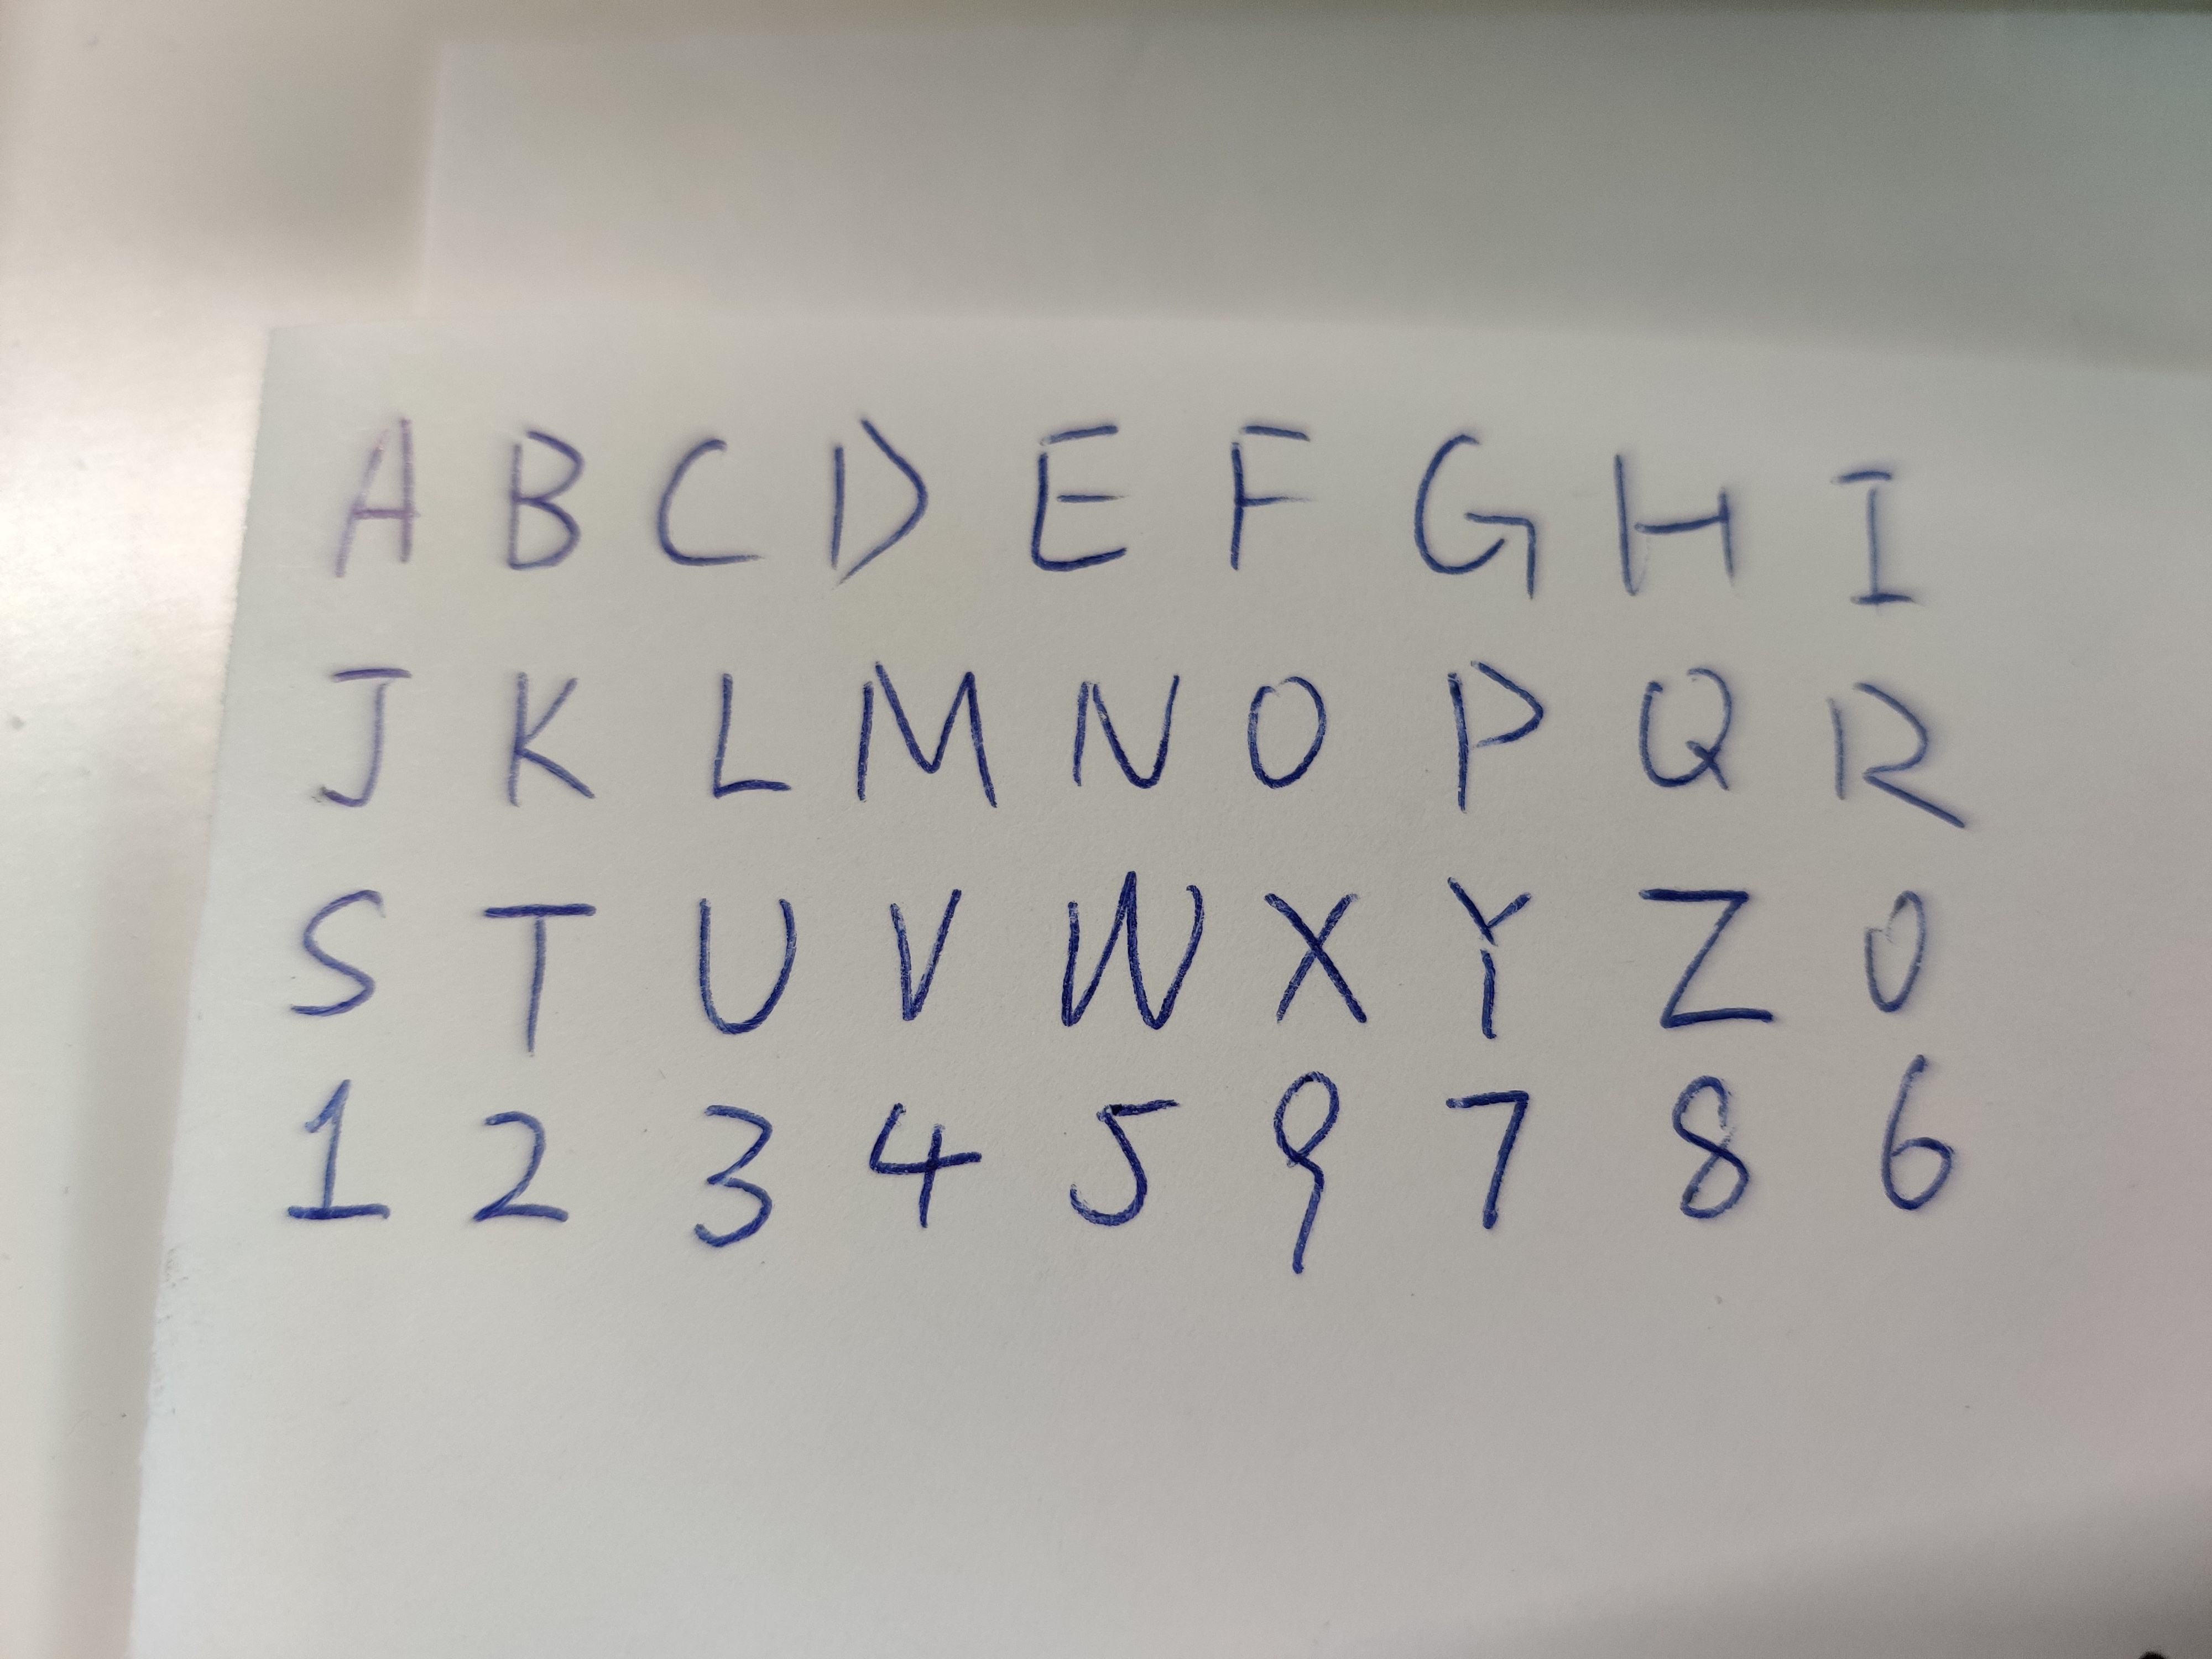 A B C D E F G H I
J K L M N O P Q R
S T U V W X Y Z 0
1 2 3 4 5 9 7 8 6